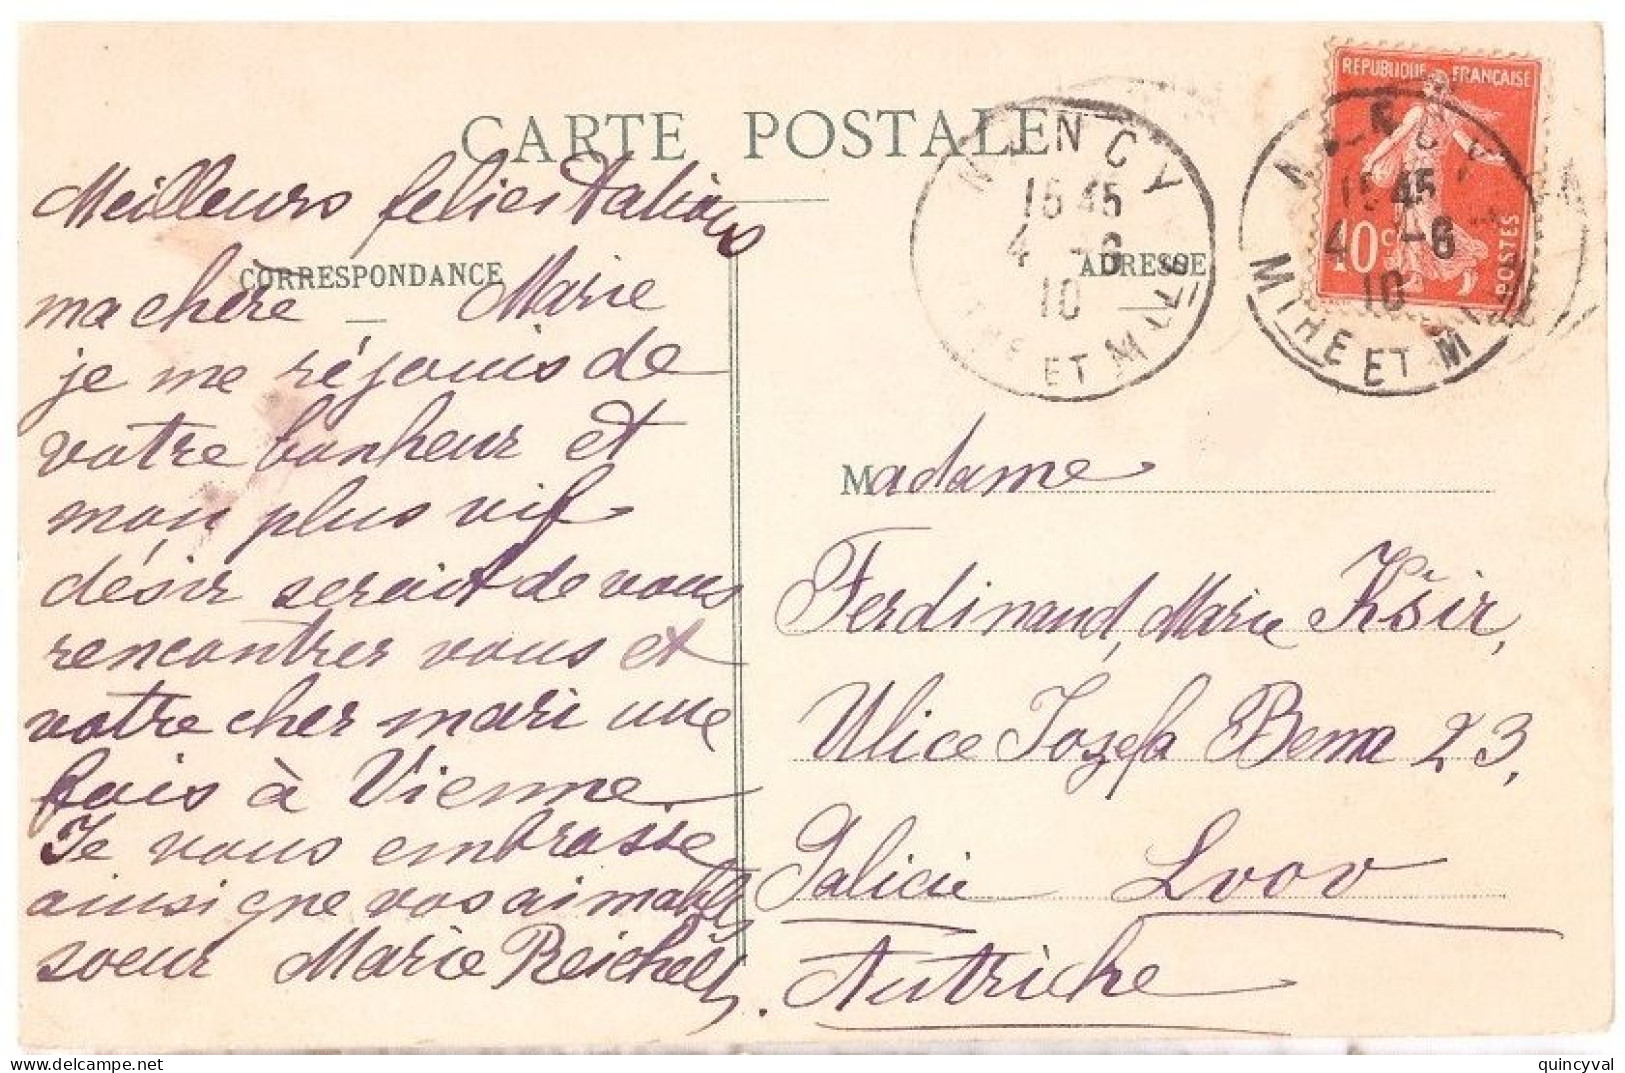 CARTE POSTALE
CORRESPONDANCE
ADRESSE
Meilleurs felicitations
ma chère Marie
je me réjouis de
votre bonheur et
mon plus vif
désir serait de vous
rencontrer vous et
votre cher mari une
fois à Vienne.
Je vous embrasse
ainsi que vos aimables
soeur Marie
NANCY
15 45
4 -6
10
MTHE ET MLLE
REPUBLIQUE FRANÇAISE
10c
POSTES
NANCY
15 45
4 -6
10
MTHE ET M
Madame
Ferdinand, Marie Kšir,
Ulice Jozefa Bema 23,
Galicie Lvov
Autriche
delcampe.net
quincyval